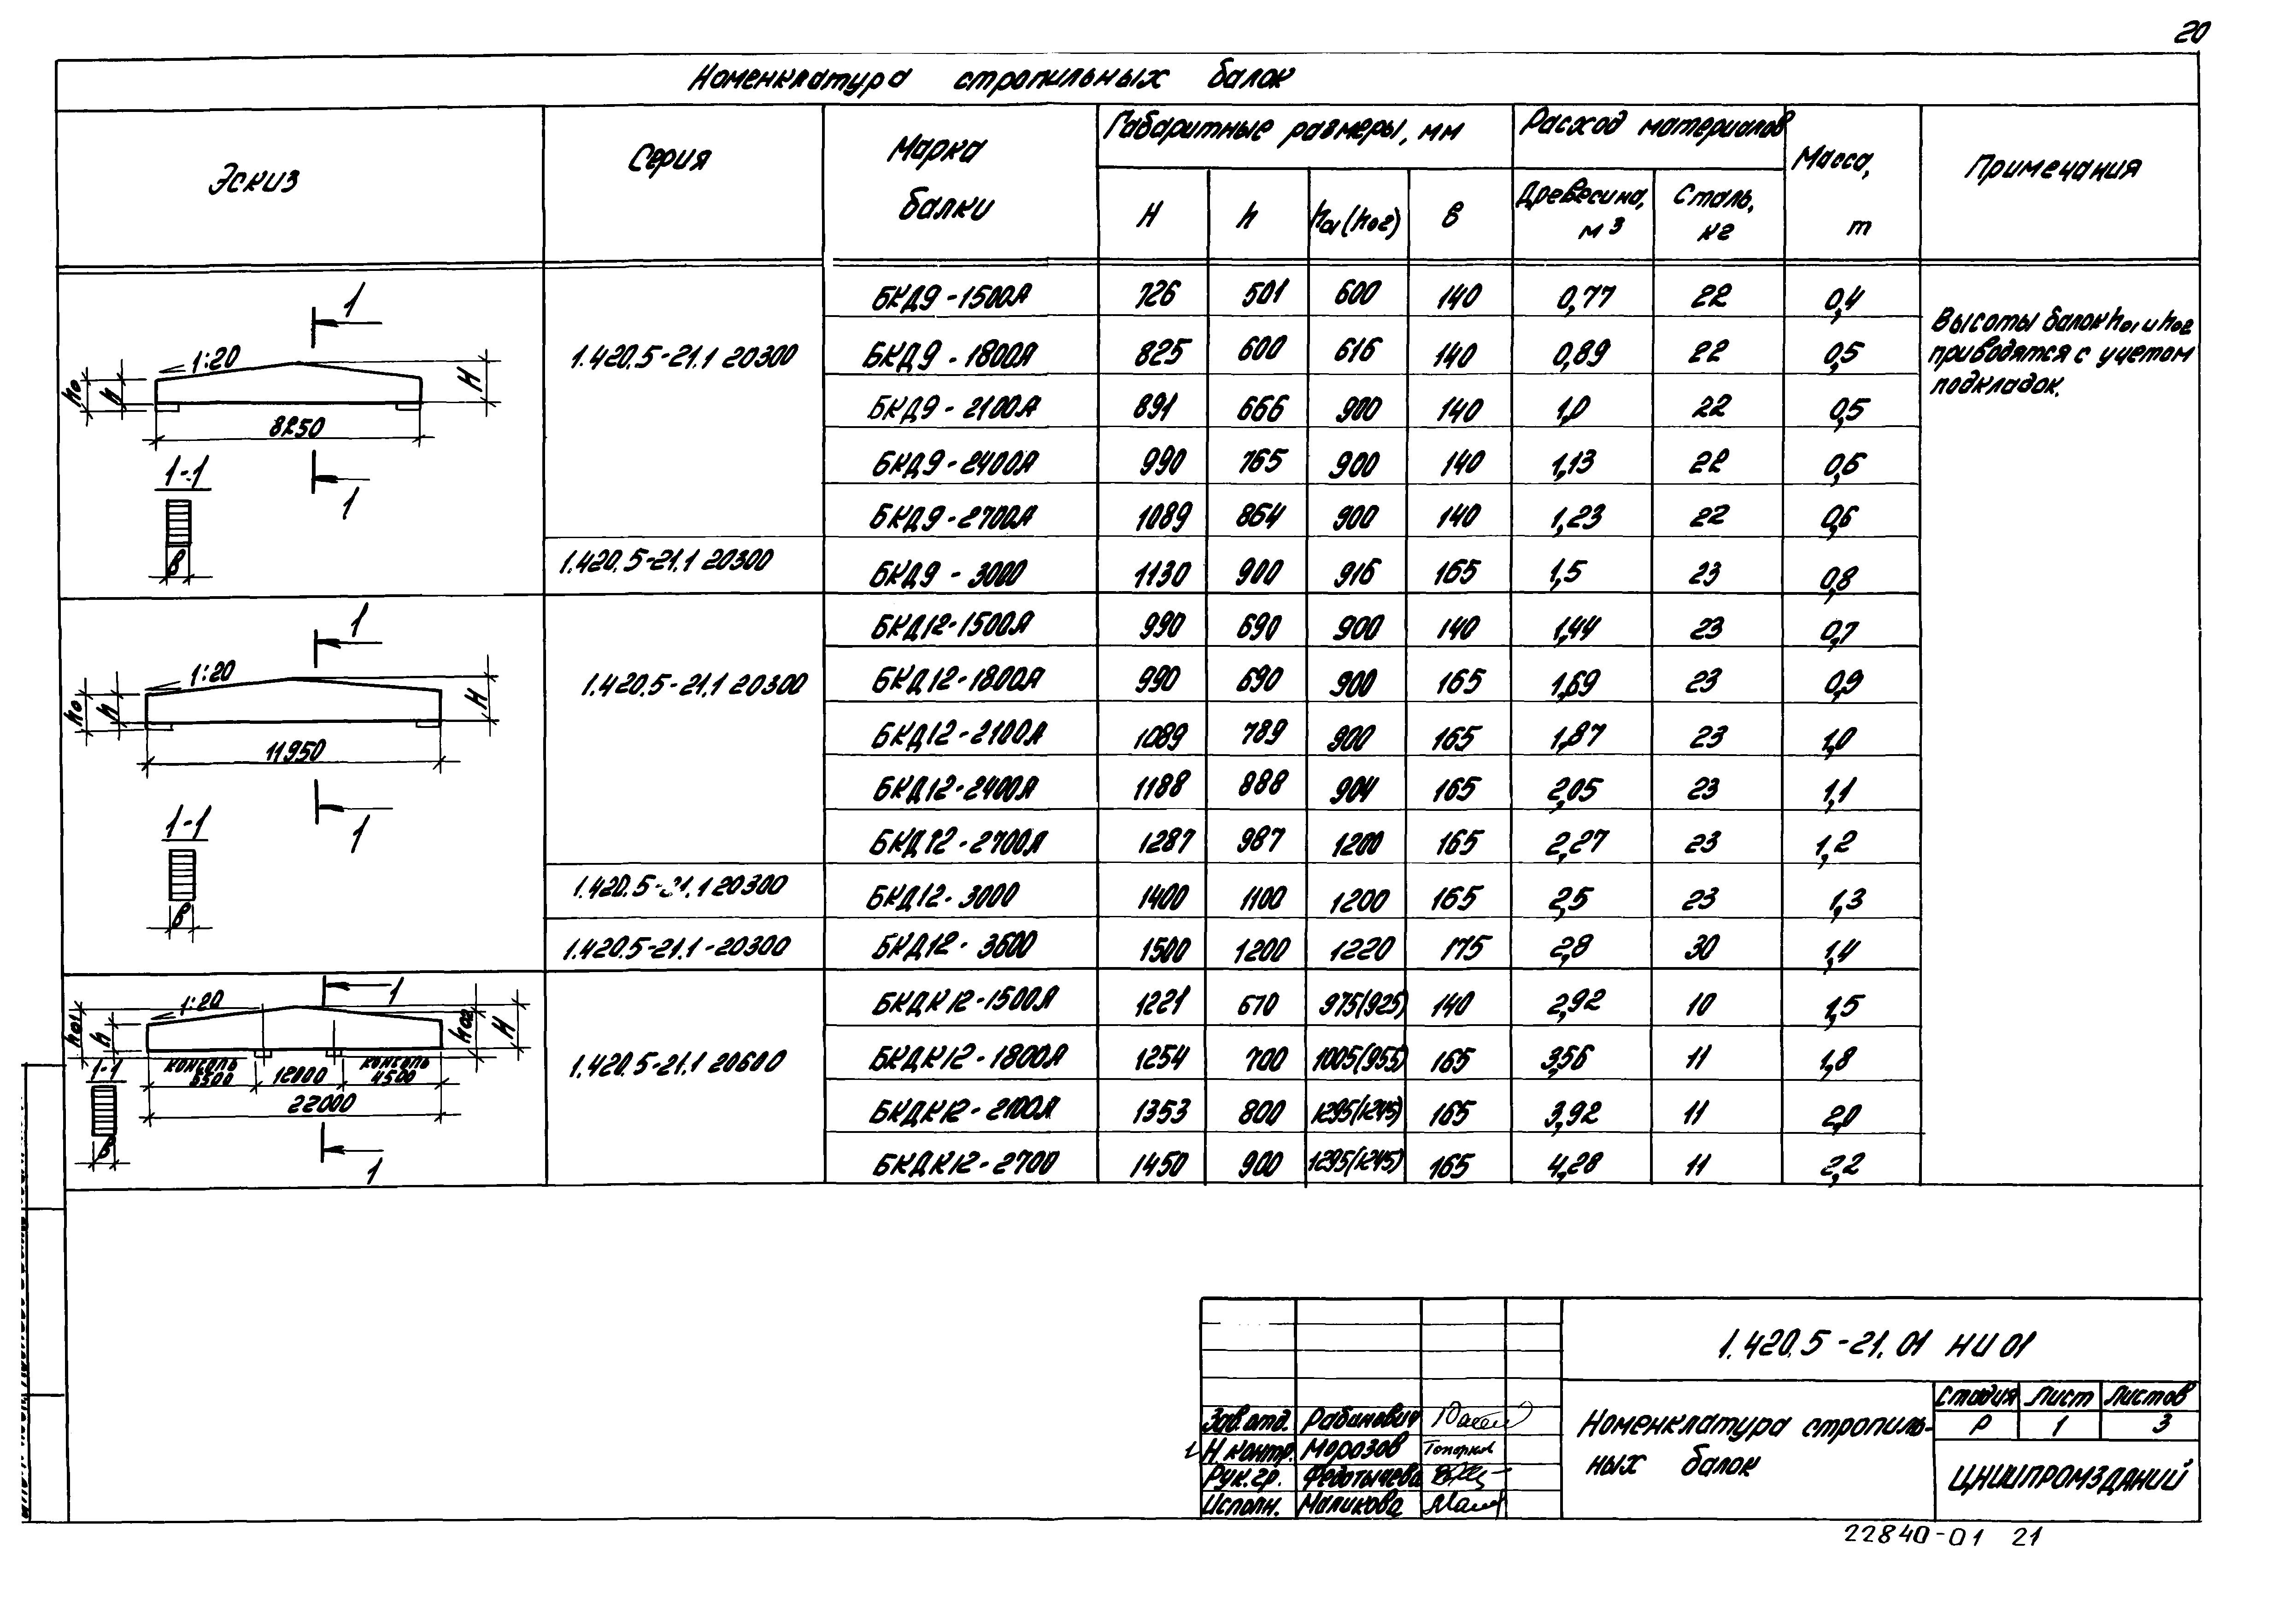 20
Номенклатура стропильных балок
Эскиз Серия Марка балки Габаритные размеры, мм Расход материалов Масса, т Примечания
H h h01(h02) в Древесина, м3 Сталь, кг
БКД9-1500А 726 501 600 140 0,77 22 0,4
БКД9-1800А 825 600 616 140 0,89 22 0,5
БКД9-2100А 891 666 900 140 1,0 22 0,5
БКД9-2400А 990 765 900 140 1,13 22 0,6
БКД9-2700А 1089 864 900 140 1,23 22 0,6
БКД9-3000 1130 900 916 165 1,5 23 0,8
БКД12-1500А 990 690 900 140 1,44 23 0,7
БКД12-1800А 990 690 900 165 1,69 23 0,9
БКД12-2100А 1089 789 900 165 1,87 23 1,0
БКД12-2400А 1188 888 904 165 2,05 23 1,1
БКД12-2700А 1287 987 1200 165 2,27 23 1,2
БКД12-3000 1400 1100 1200 165 2,5 23 1,3
БКД12-3600 1500 1200 1220 175 2,8 30 1,4
БКДК12-1500А 1221 670 975(925) 140 2,92 10 1,5
БКДК12-1800А 1254 700 1005(955) 165 3,56 11 1,8
БКДК12-2100А 1353 800 1295(1245) 165 3,92 11 2,0
БКДК12-2700 1450 900 1295(1245) 165 4,28 11 2,2
1.420.5-21.1 20300
1.420.5-21.1 20300
1.420.5-21.1 20300
1.420.5-21.1 20300
1.420.5-21.1-20300
1.420.5-21.1 20600
Высоты балок h01 и h02
приводятся с учетом
подкладок.
1
1:20
h0 h H
8250
1-1
1
в
1
1:20
h0 h H
11950
1
1-1
в
1
1:20
h01 h h02 H
консоль консоль
5500 12000 4500
1-1
22000
в
1
1.420.5-21.01 НИ 01
Стадия Лист Листов
Р 1 3
Номенклатура стропиль-
ных балок
ЦНИИПРОМЗДАНИЙ
Зав.отд. Рабинович
Н контр. Морозов
Рук.гр. Федотычева
Исполн. Маликова
22840-01 21